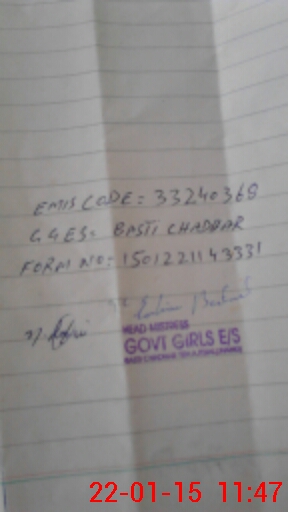 EMIS CODE = 33240368
GGES: BASTI CHADHAR
FORM NO: 1501221143331
HEAD MISTRESS
GOVT GIRLS E/S
22-01-15 11:47